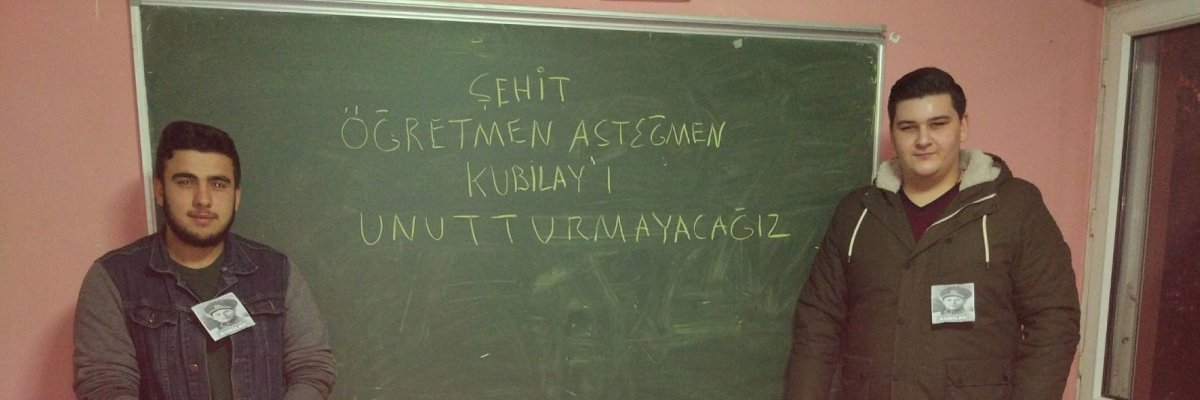 ŞEHİT
ÖĞRETMEN ASTEĞMEN
KUBİLAY'I
UNUTTURMAYACAĞIZ
KUBİLAY
KUBİLAY